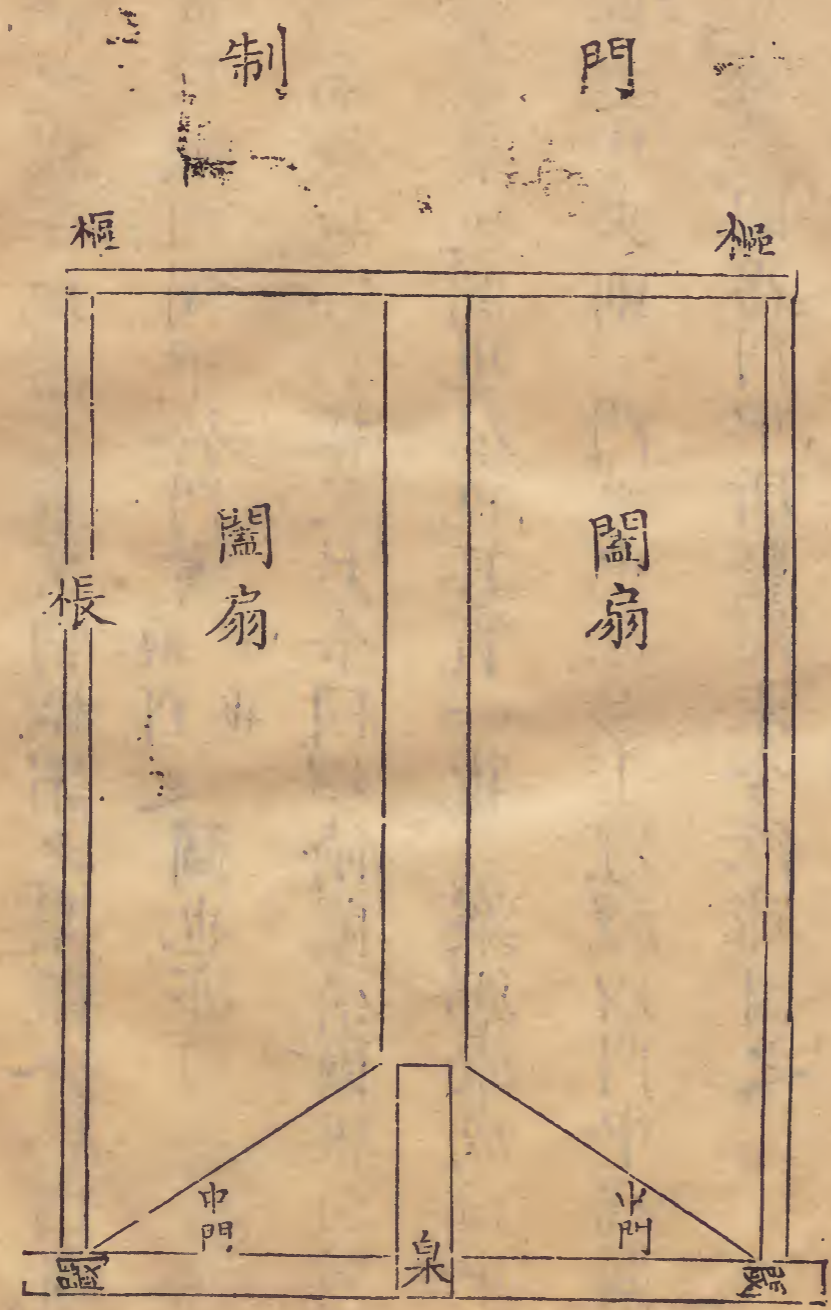 門制
樞
樞
闔扇
闔扇
棖
中門
中門
閾
臬
閾